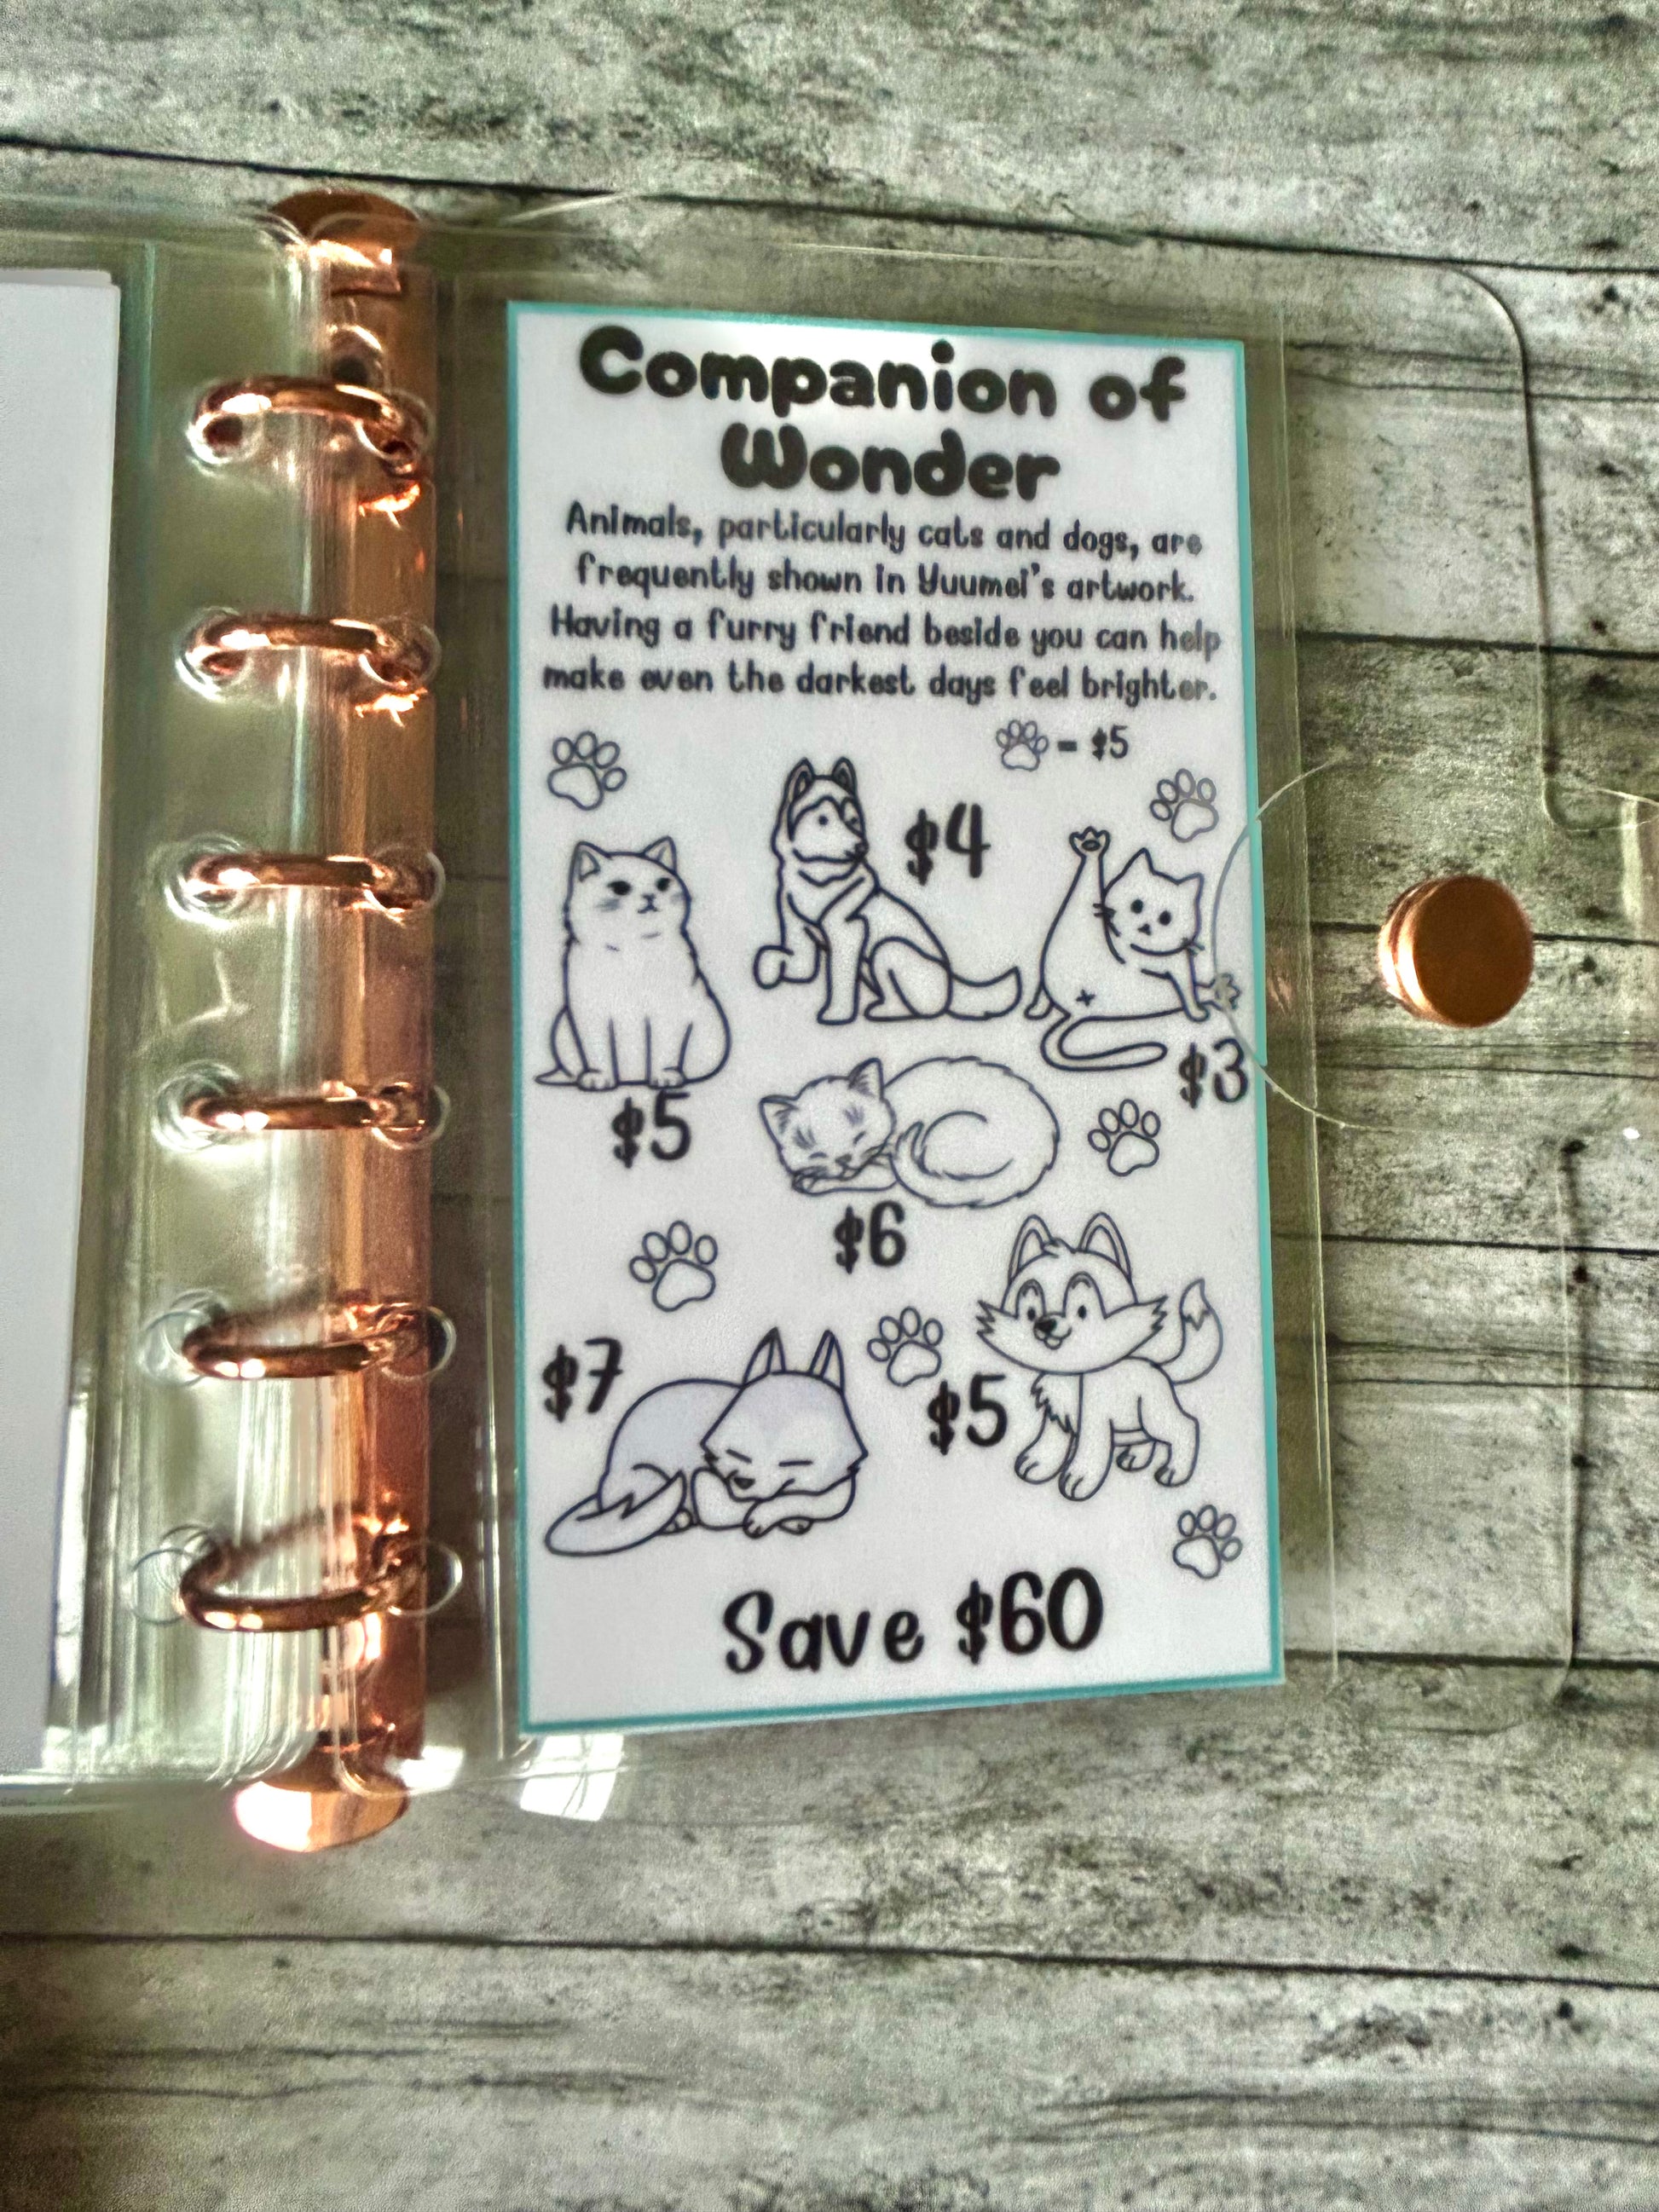 Companion of
Wonder
Animals, particularly cats and dogs, are
frequently shown in Yuumei's artwork.
Having a furry friend beside you can help
make even the darkest days feel brighter.
= $5
$4
$3
$5
$6
$7
$5
Save $60